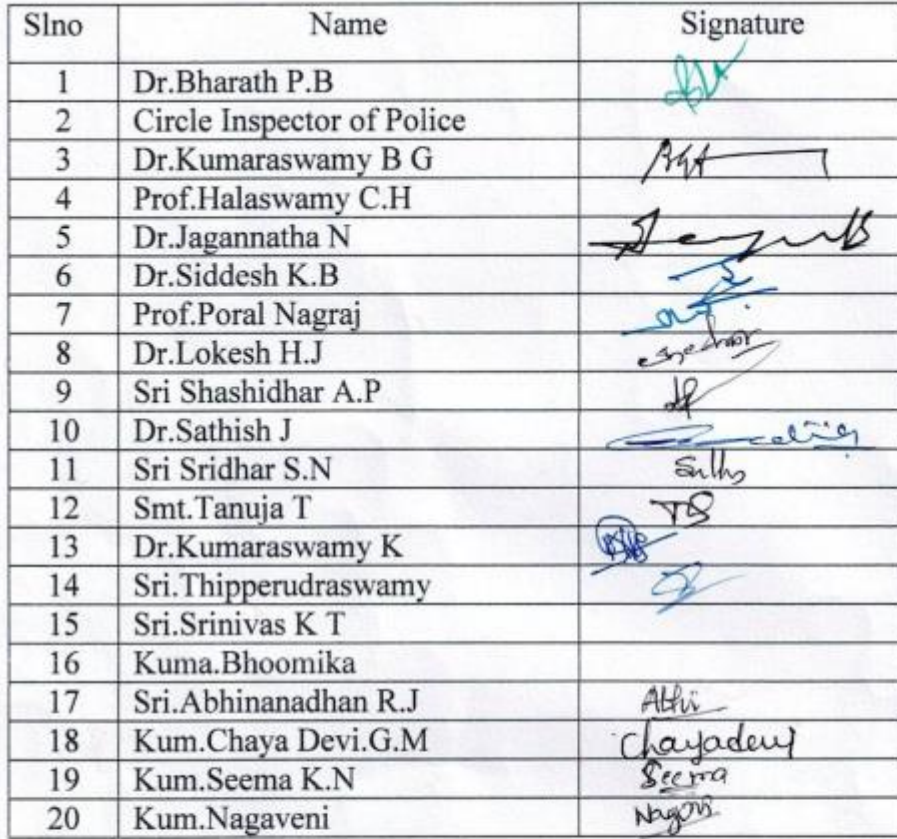 Slno Name Signature
1 Dr.Bharath P.B
2 Circle Inspector of Police
3 Dr.Kumaraswamy B G
4 Prof.Halaswamy C.H
5 Dr.Jagannatha N
6 Dr.Siddesh K.B
7 Prof.Poral Nagraj
8 Dr.Lokesh H.J
9 Sri Shashidhar A.P
10 Dr.Sathish J
11 Sri Sridhar S.N
12 Smt.Tanuja T
13 Dr.Kumaraswamy K
14 Sri.Thipperudraswamy
15 Sri.Srinivas K T
16 Kuma.Bhoomika
17 Sri.Abhinanadhan R.J Abhi
18 Kum.Chaya Devi.G.M Chayadevi
19 Kum.Seema K.N Seema
20 Kum.Nagaveni